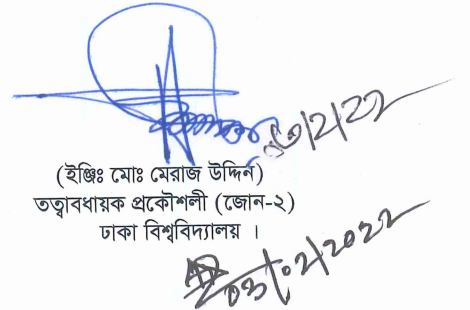 ৩/২/২২
(ইঞ্জিঃ মোঃ মেরাজ উদ্দিন)
তত্ত্বাবধায়ক প্রকৌশলী (জোন-২)
ঢাকা বিশ্ববিদ্যালয় ।
03/02/2022